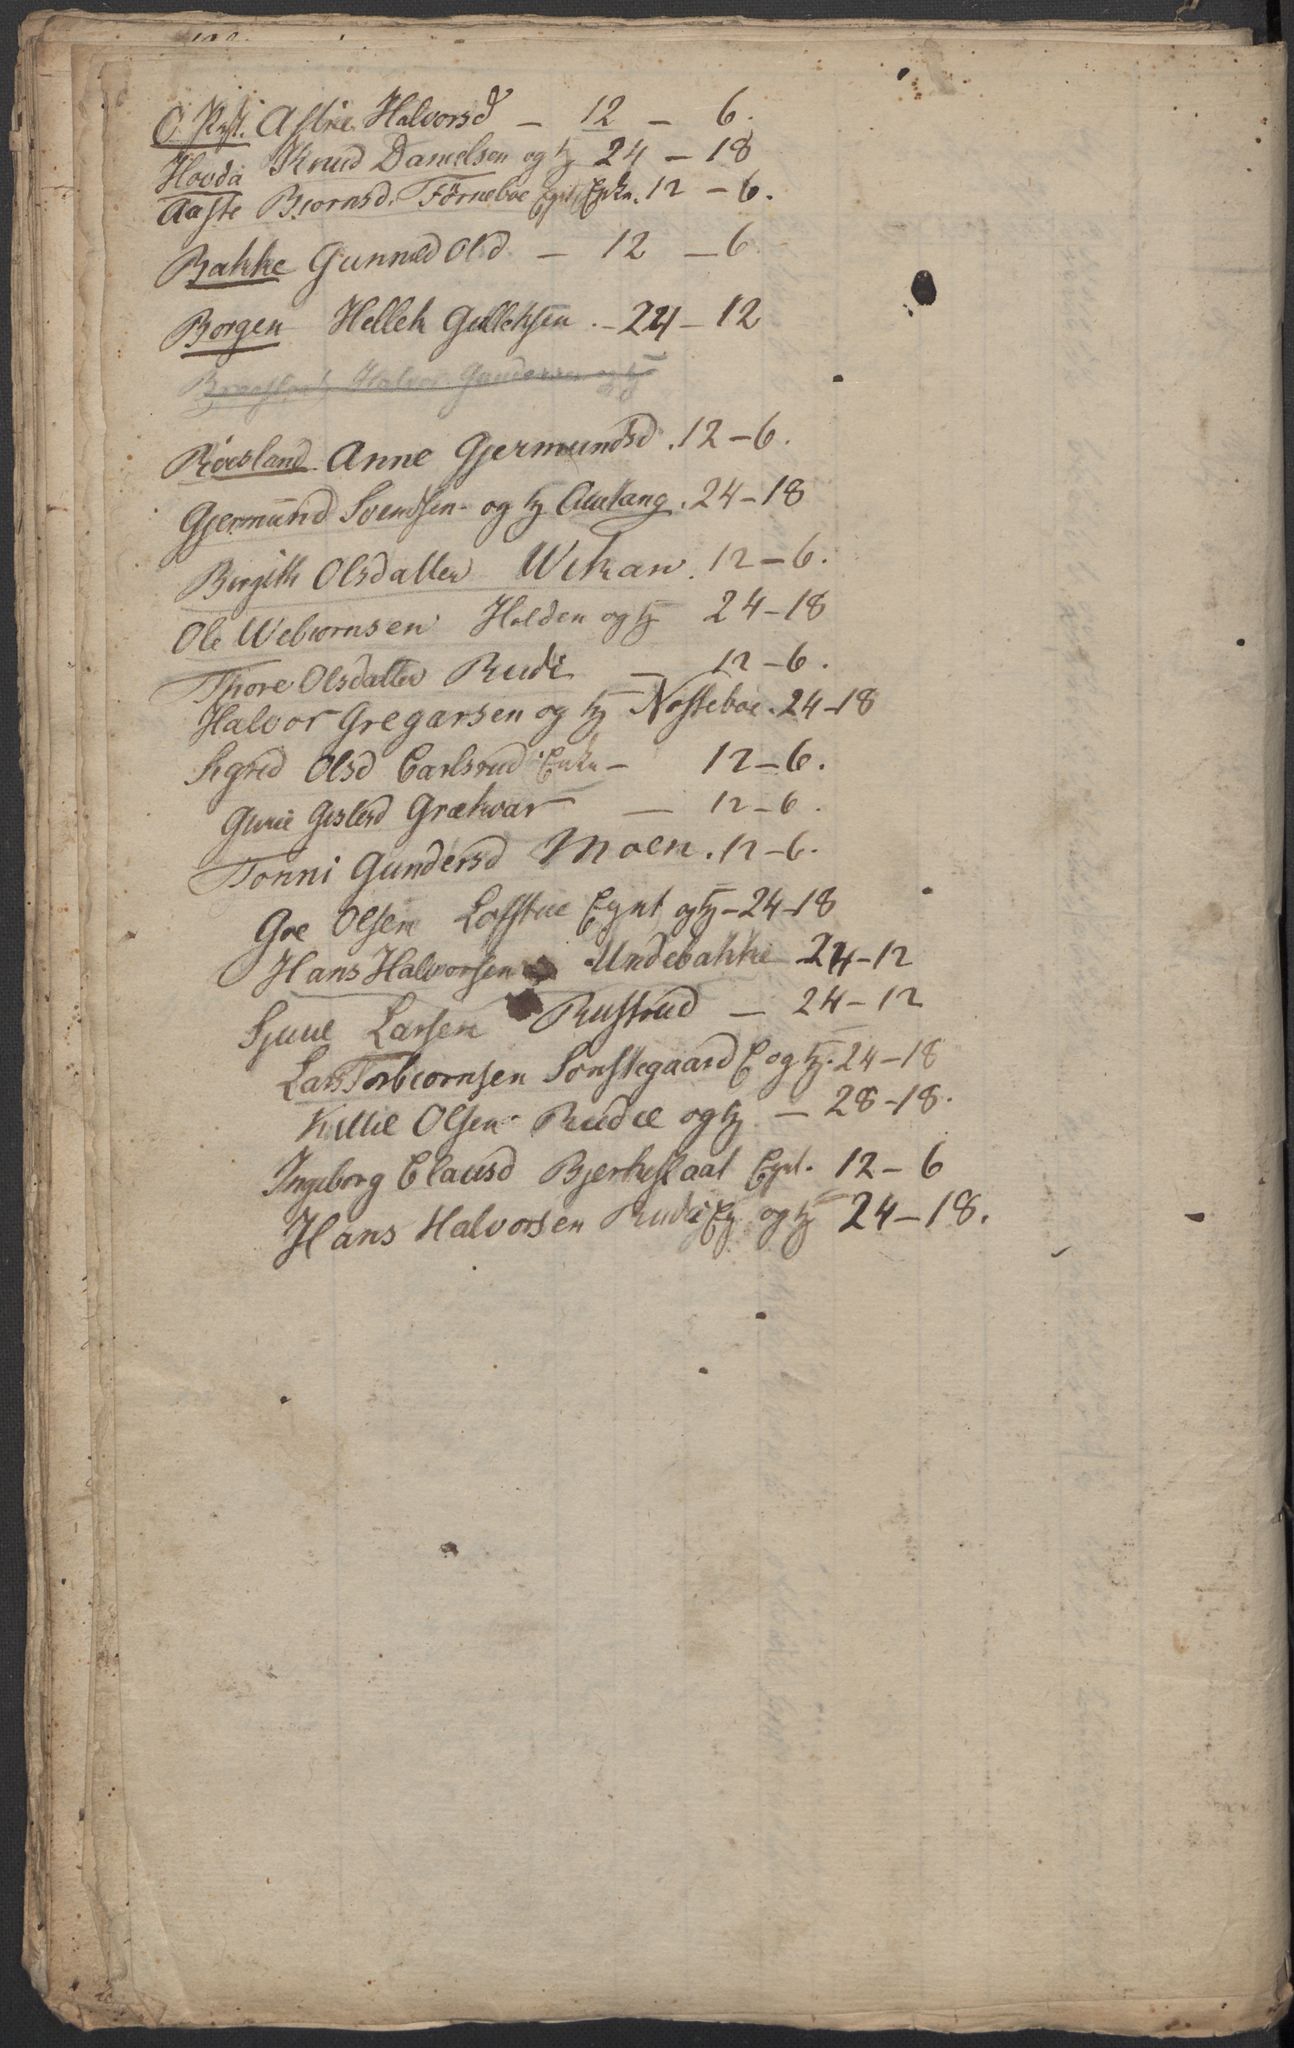 Astrie Halvorsd – 12 – 6.
Hovda Knud Danielsen og 24 – 18
Aaste Biornsd. Förneboe Enke. 12 – 6.
Bakke Gunnild Olsd – 12 – 6
Borgen Hellek Gullehsen. – 24 – 12
Halvor Gundersen og
Röesland Anne Gjermundsd. 12 – 6.
Gjermund Svendsen og Aultang. 24 – 18
Birgith Olsdatter Wikan. 12 – 6.
Ole Webiornsen Holden og 24 – 18
Thore Olsdatter Rudi – 12 – 6.
Halvor Gregarsen og Nosteboe. 24 – 18
Sigrid Olsd Carlsrud Enke – 12 – 6.
Gurie Gislesd Grækvar – 12 – 6.
Tonni Gundersd Moen. 12 – 6.
Gre Olsen Lofstue og – 24 – 18
Hans Halvorsen Undebakke 24 – 12
Sjuul Larsen Rustrud – 24 – 12
Lars Torbiornsen Sönstegaard E og 24 – 18
Kittil Olsen Rudie og – 28 – 18.
Ingeborg Clausd Bjerkeflaat 12 – 6
Hans Halvorsen Rudie og 24 – 18.